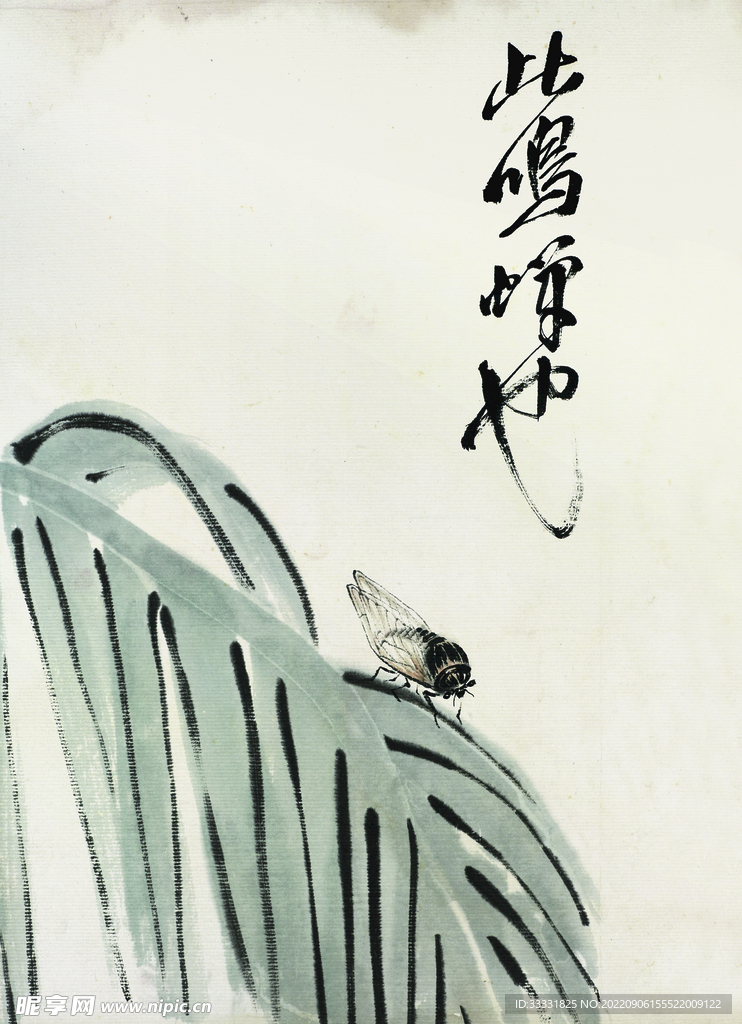 此鳴蟬也
昵享网 www.nipic.cn
ID:33331825 NO:20220906155522009122